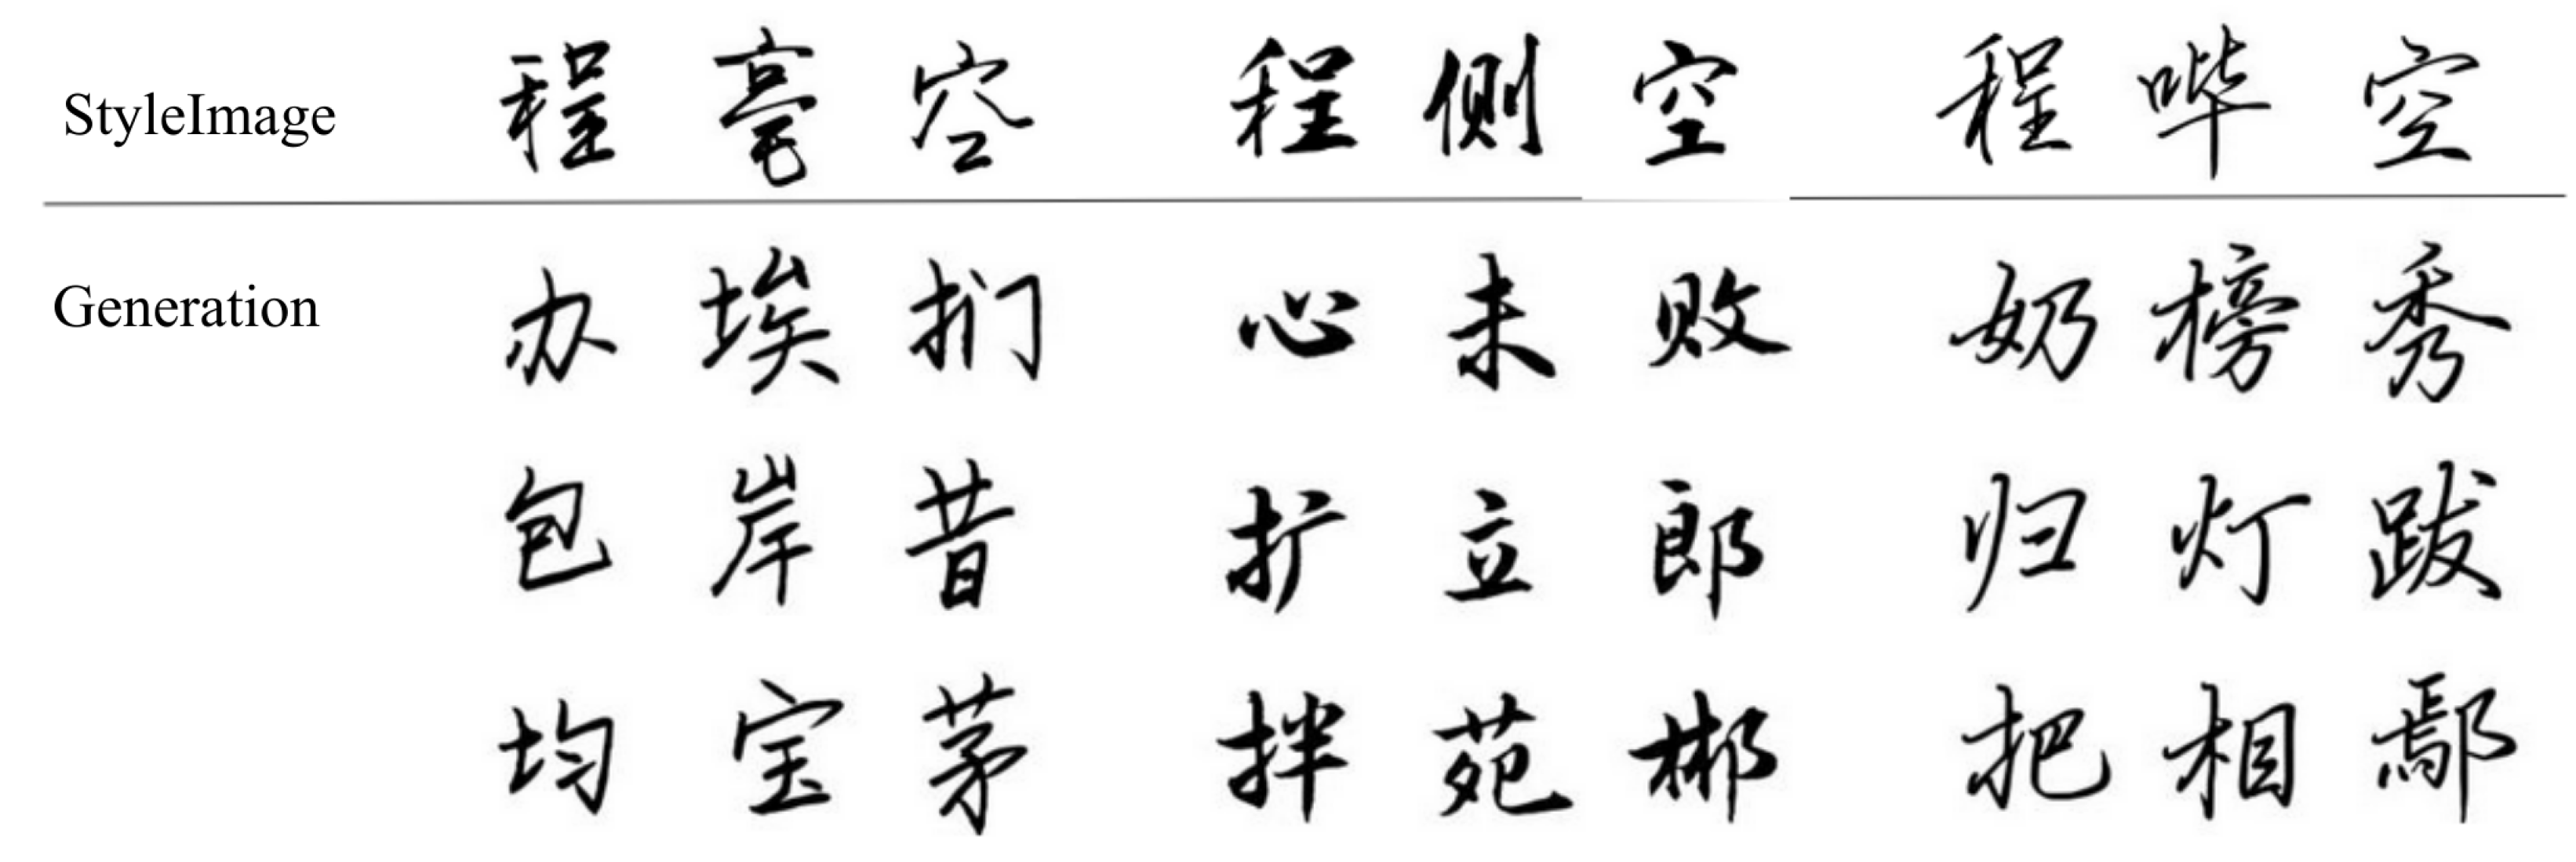 StyleImage 程 毫 空 程 侧 空 程 哔 空
Generation 办 埃 扪 心 未 败 奶 榜 秀
包 岸 昔 扩 立 郎 归 灯 跋
均 宝 茅 拌 苑 郴 把 相 鄢